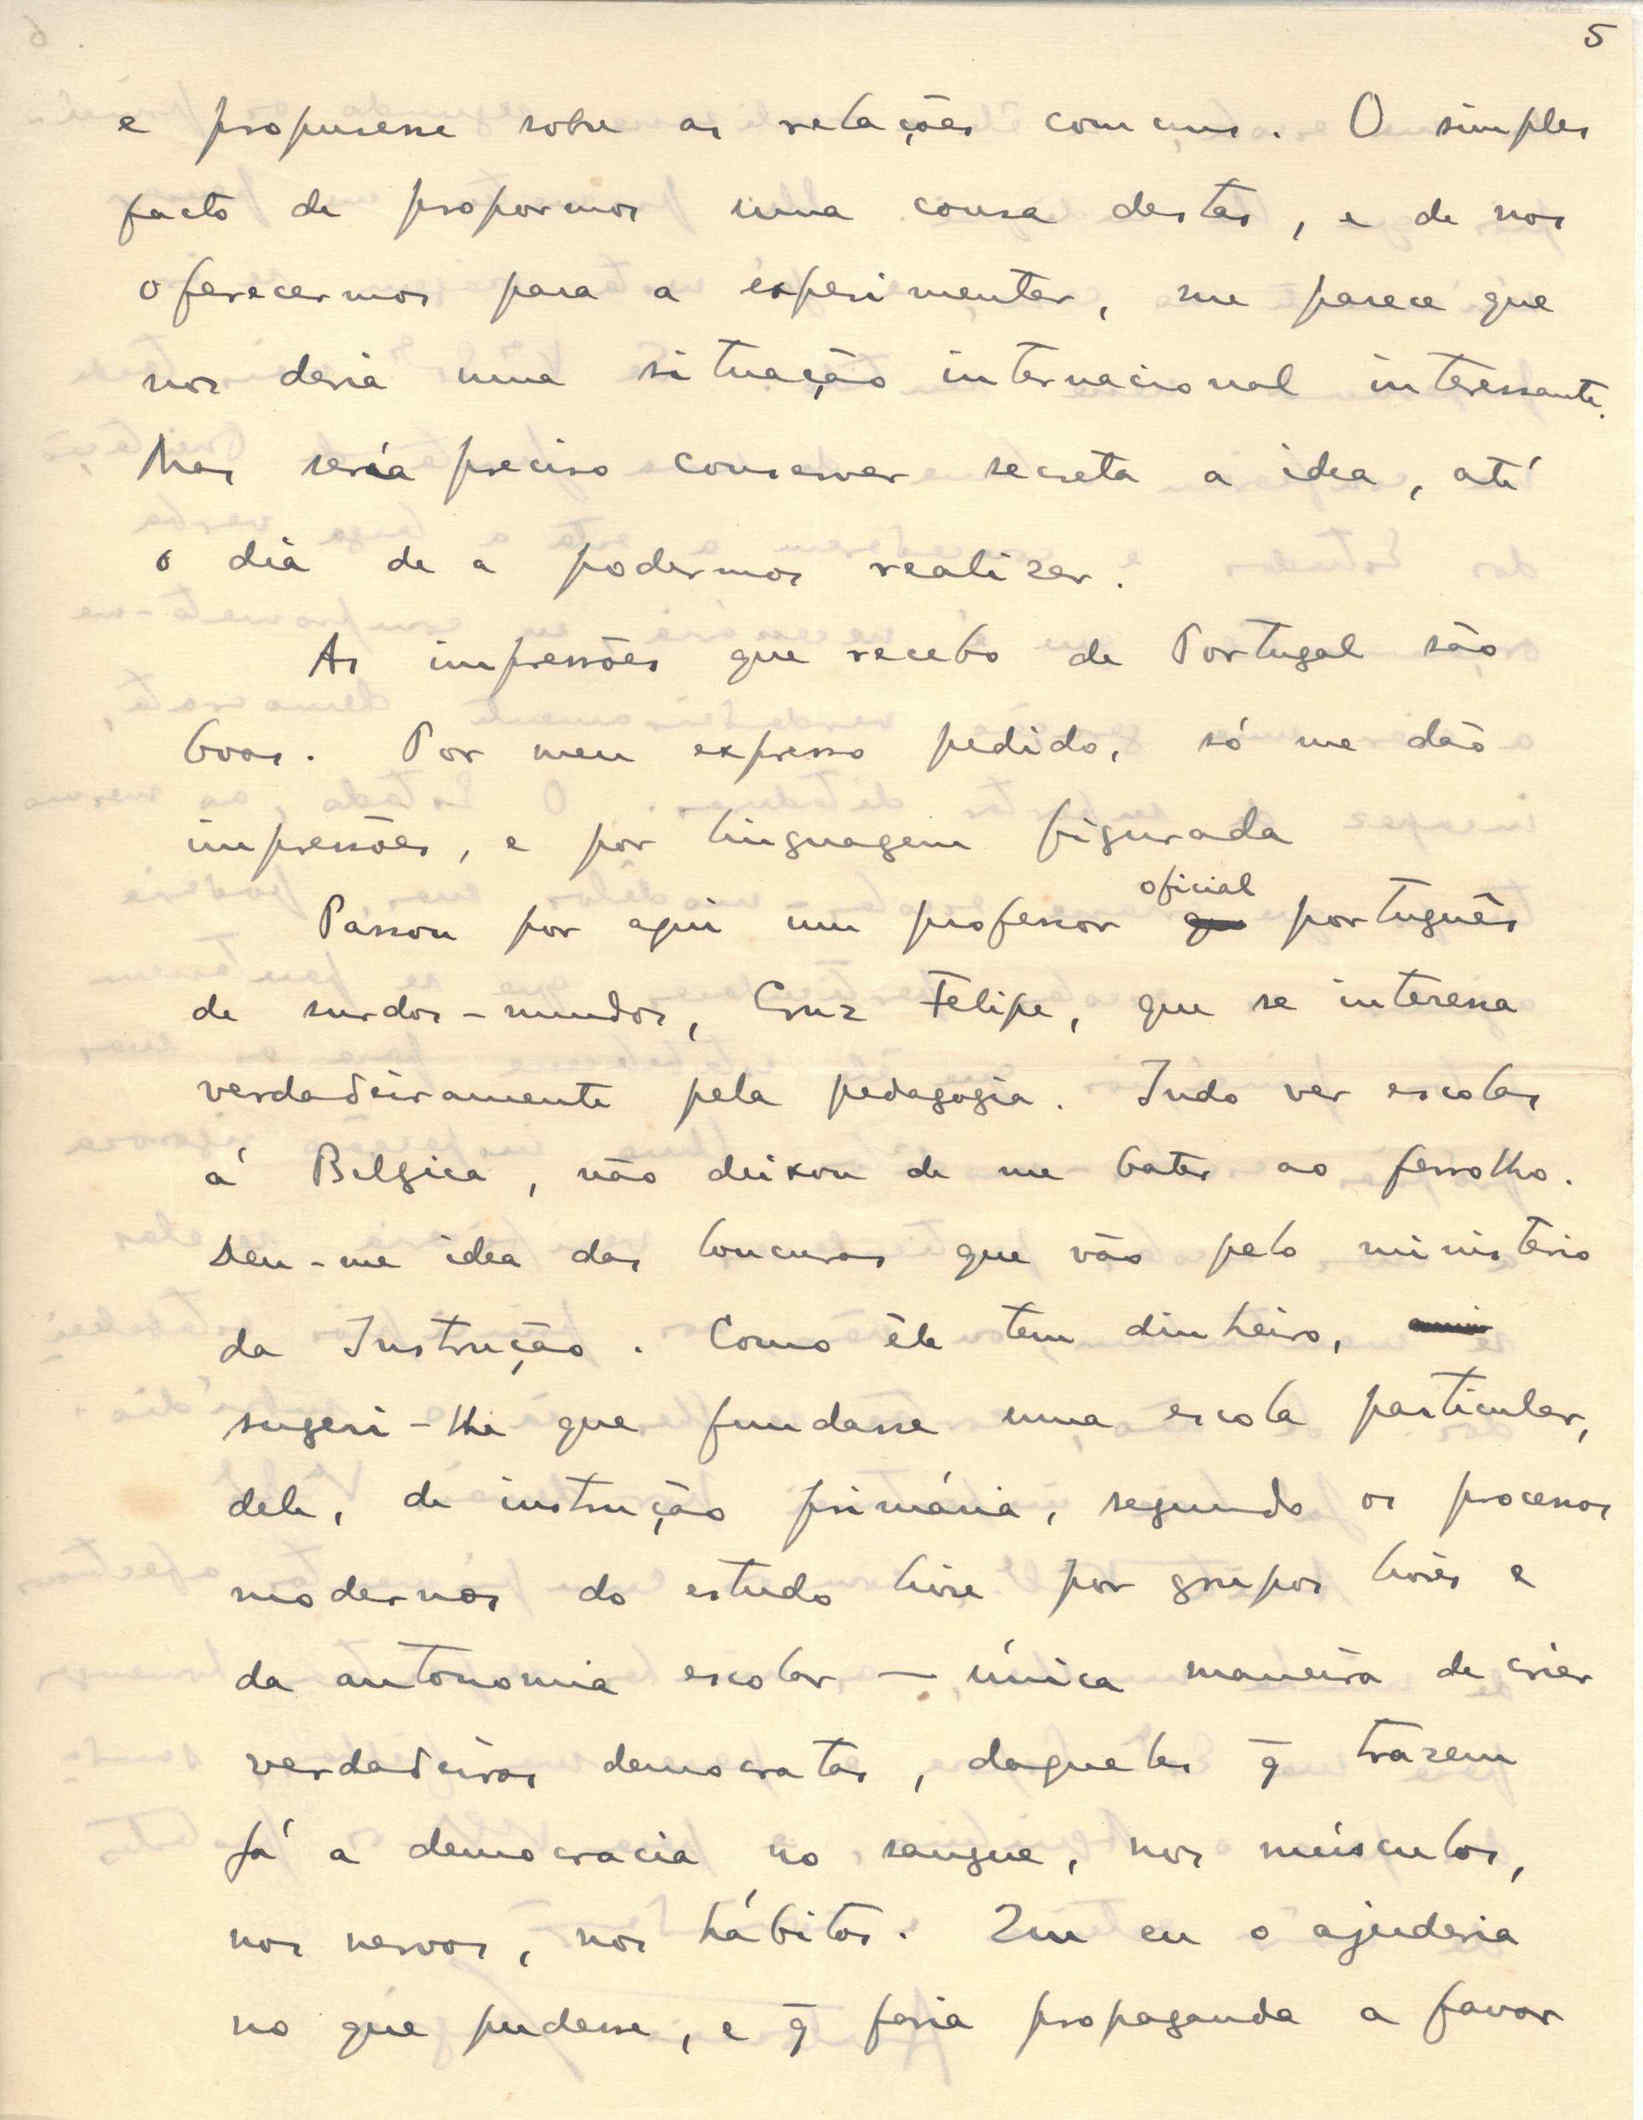 5
e propusesse sobre as relações com uns. O simples
facto de propormos uma cousa destas, e de nos
oferecermos para a experimentar, me parece que
nos daria uma situação internacional interessante.
Mas seria preciso conservar secreta a idea, até
o dia de a podermos realizar.
As impressões que recebo de Portugal são
boas. Por meu expresso pedido, só me dão
impressões, e por linguagem figurada
oficial
Passou por aqui um professor português
de surdos-mudos, Cruz Felipe, que se interessa
verdadeiramente pela pedagogia. Indo ver escolas
á Belgica, não deixou de me bater ao ferrolho.
Deu-me idea das loucuras que vão pelo ministério
da Instrução. Como êle tem dinheiro,
sugeri-lhe que fundasse uma escola particular,
dele, de instrução primária, segundo os processos
modernos do estudo livre por grupos livres e
da autonomia escolar — única maneira de criar
verdadeiros democratas, daqueles q̄ trazem
já a democracia no sangue, nos músculos,
nos nervos, nos hábitos. Que eu o ajudaria
no que pudesse, e q̄ faria propaganda a favor